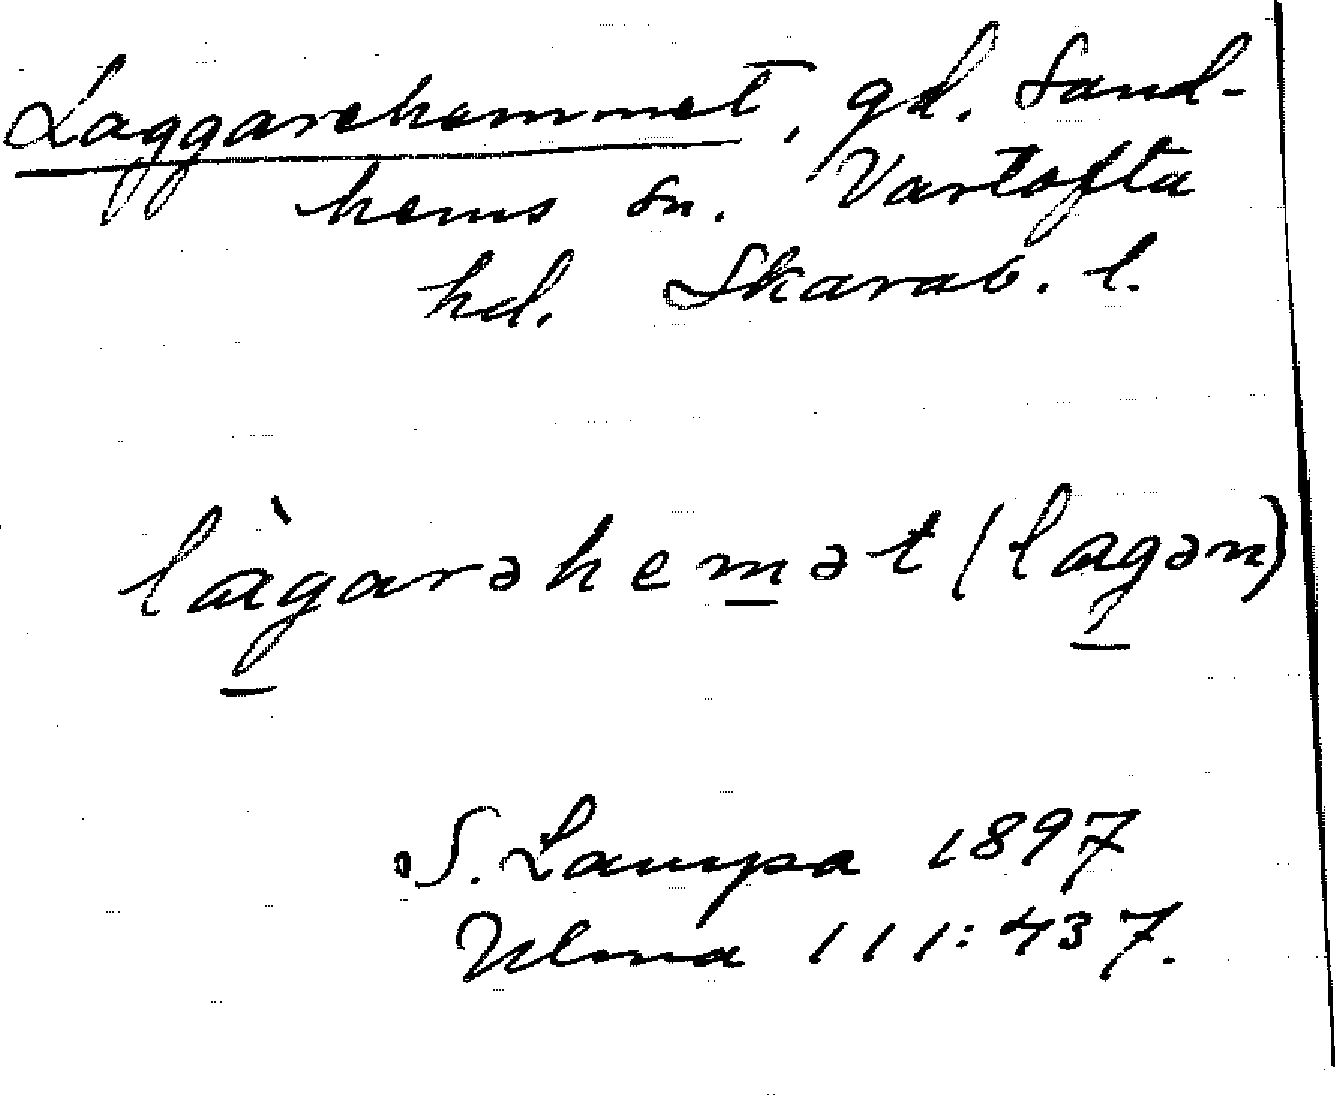 Laggarehemmet, gd. Sand-
hems sn. Vartofta
hd. Skarab. l.
làgarəhemət (lagən)
S. Lampa 1897
Ulma 111:437.